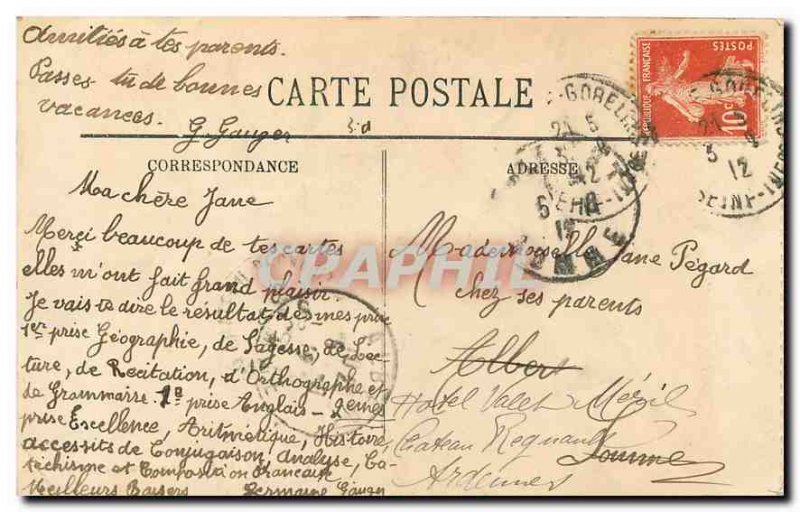 Amitiés à tes parents.
Passes-tu de bonnes
vacances.
G. Gauger
CARTE POSTALE
CORRESPONDANCE
ADRESSE
RÉPUBLIQUE FRANÇAISE
POSTES
10c
Ma chère Jane
Merci beaucoup de tes cartes
elles m'ont fait grand plaisir.
Je vais te dire le résultat de mes prix
1er prise Géographie, de Sagesse, de Lec-
ture, de Recitation, d'Orthographe et
de Grammaire. prise Anglais - 2emes
prise Excellence, Aritmétique, Histoire,
accessits de Conjugaison, Analyse, Ca-
téchisme et Composition Francaise
Meilleurs Baisers Germaine Gauger
Mademoiselle Jane Pégard
chez ses parents
Albert
Somme
Hotel Valet
Chateau Regnault
Ardennes
CPAPHIL